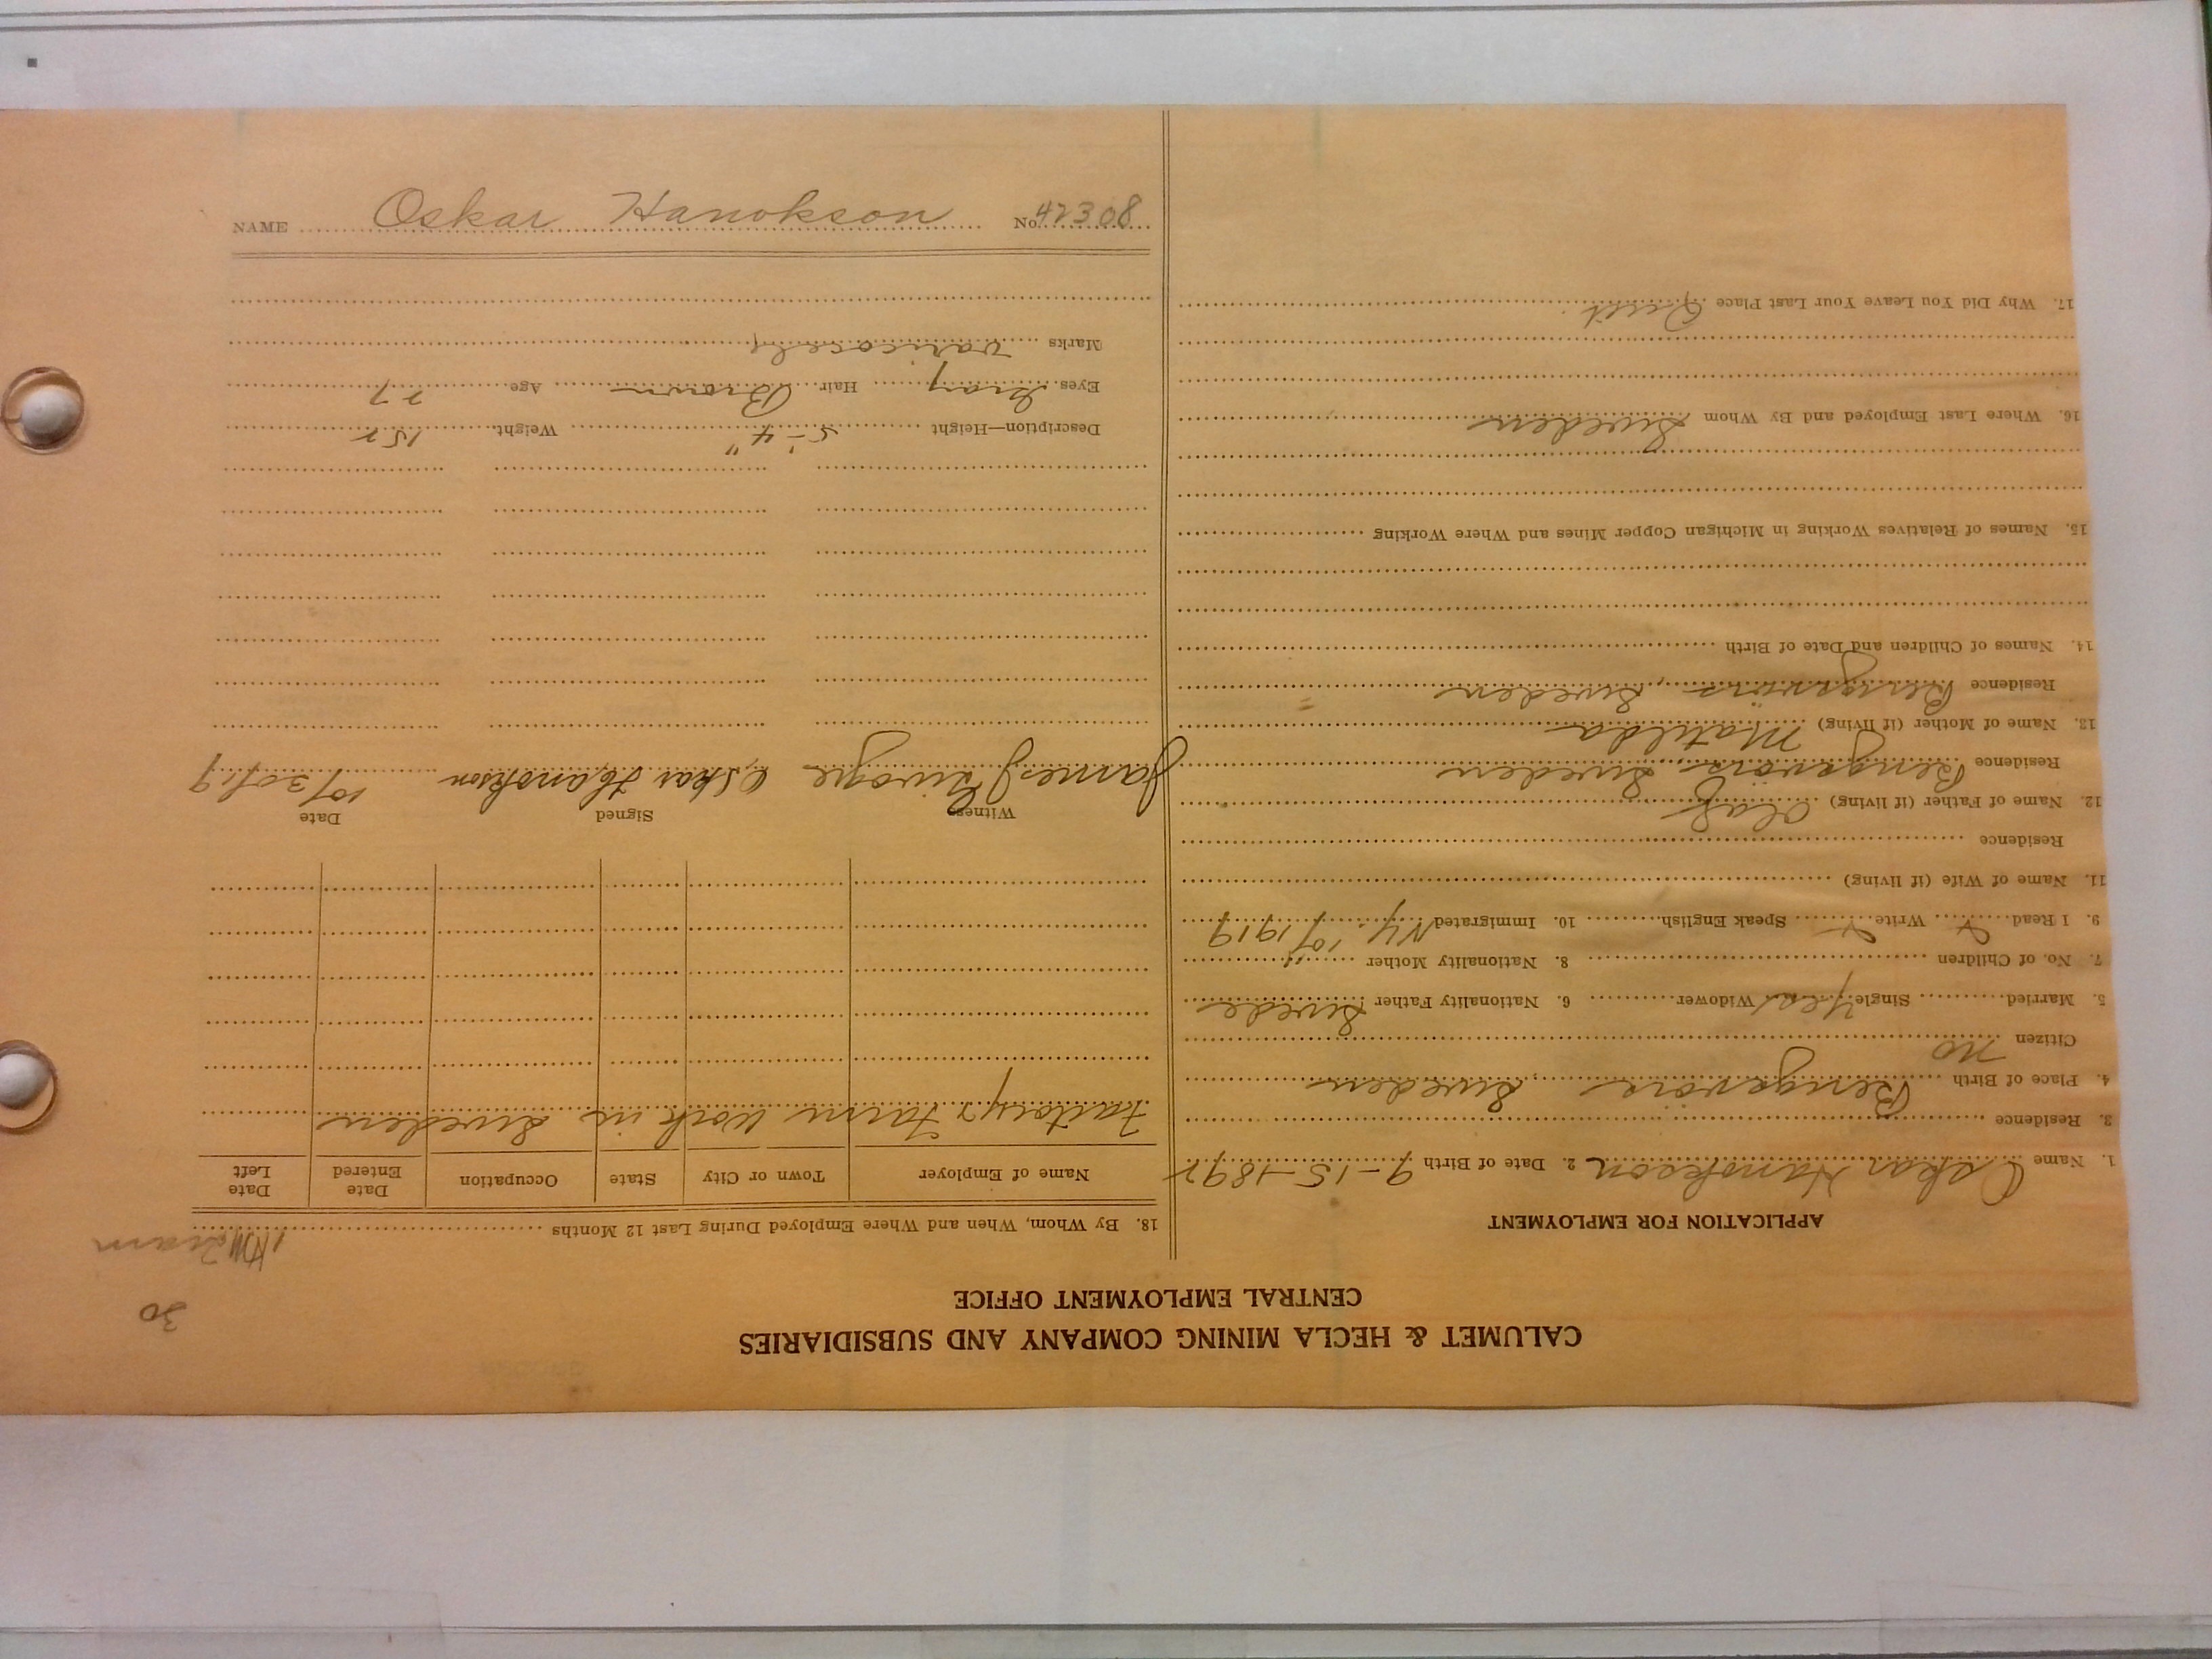 CALUMET & HECLA MINING COMPANY AND SUBSIDIARIES
CENTRAL EMPLOYMENT OFFICE
30
APPLICATION FOR EMPLOYMENT
1. Name Oskar Hanokson 2. Date of Birth 9-15-1892
3. Residence
4. Place of Birth Bengsvors, Sweden
Citizen no
5. Married Single Yes Widower 6. Nationality Father Swede
7. No. of Children 8. Nationality Mother "
9. I Read V Write V Speak English 10. Immigrated NY. 10/1919
11. Name of Wife (if living)
Residence
12. Name of Father (if living) Olaf
Residence Bengsvors, Sweden
13. Name of Mother (if living) Matilda
Residence Bengsvors, Sweden
14. Names of Children and Date of Birth
15. Names of Relatives Working in Michigan Copper Mines and Where Working
16. Where Last Employed and By Whom Sweden
17. Why Did You Leave Your Last Place Quit
18. By Whom, When and Where Employed During Last 12 Months
Name of Employer Town or City State Occupation Date Entered Date Left
Factory & Farm Work in Sweden
Witness Signed Date
James J Oskar Hanokson 10/30/19
Description—Height 5'-4" Weight 152
Eyes Gray Hair Brown Age 27
Marks varicocele
NAME Oskar Hanokson No. 42308